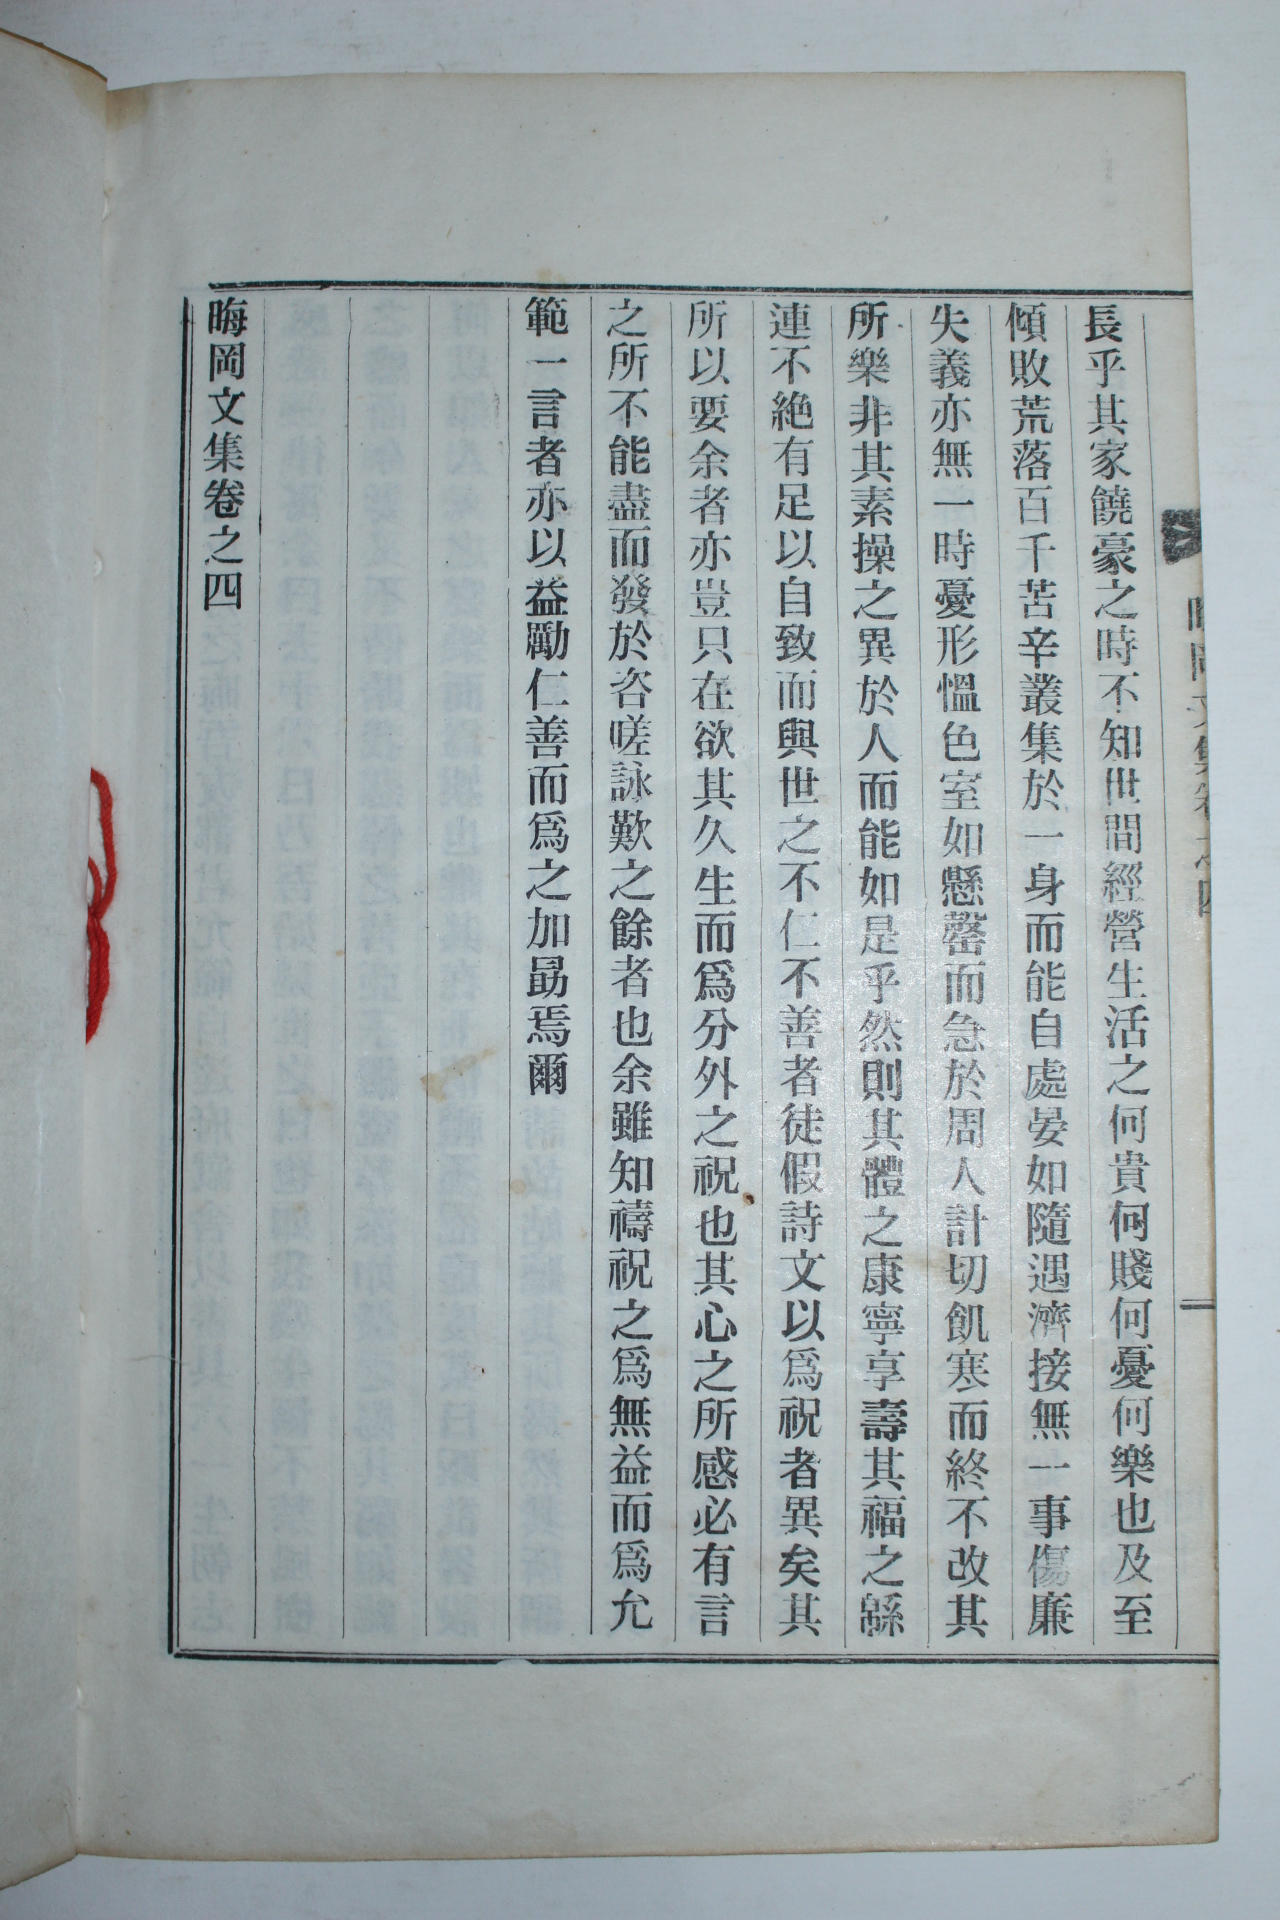 長乎其家饒豪之時不知世間經營生活之何貴何賤何憂何樂也及至
傾敗荒落百千苦辛叢集於一身而能自處晏如隨遇濟接無一事傷廉
失義亦無一時憂形慍色室如懸罄而急於周人計切飢寒而終不改其
所樂非其素操之異於人而能如是乎然則其體之康寧享壽其福之緜
連不絶有足以自致而與世之不仁不善者徒假詩文以爲祝者異矣其
所以要余者亦豈只在欲其久生而爲分外之祝也其心之所感必有言
之所不能盡而發於咨嗟詠歎之餘者也余雖知禱祝之爲無益而爲允
範一言者亦以益勵仁善而爲之加勗焉爾
晦岡文集卷之四